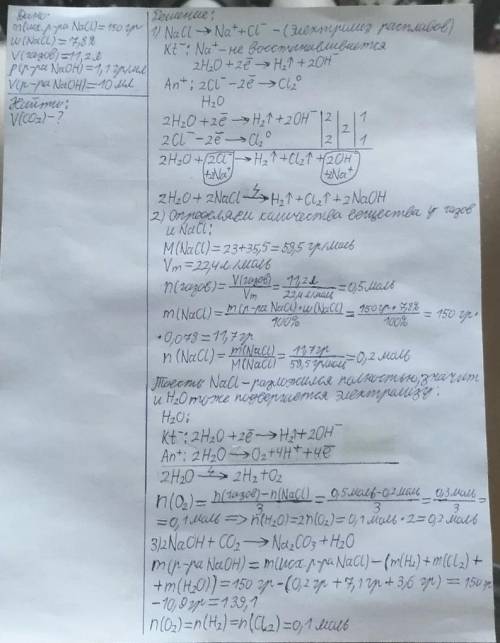 Дано:
m(исх. р-ра NaCl)=150гр
w(NaCl)=7,8%
V(газов)=11,2л
p(р-ра NaOH)=1,1гр/мл
V(р-ра NaOH)=10 мл
Найти:
V(CO₂)-?
Решение:
1) NaCl→Na⁺+Cl⁻ - (электролиз расплавов)
Kt⁻: Na⁺-не восстанавливается
2H₂O+2ē→H₂↑+2OH⁻
An⁺: 2Cl⁻-2ē→Cl₂⁰
H₂O
2H₂O+2ē→H₂↑+2OH⁻|2| |1
2Cl⁻-2ē→Cl₂⁰ |2|2|1
2H₂O+2Cl⁻→H₂↑+Cl₂↑+2OH⁻
+2Na⁺ +2Na⁺
2H₂O+2NaCl→H₂↑+Cl₂↑+2NaOH
2) Определяем количества вещества у газов
и NaCl:
M(NaCl)=23+35,5=58,5 гр/моль
Vm=22,4 л/моль
n(газов)=V(газов)/Vm=11,2л/22,4л/моль=0,5моль
m(NaCl)=m(р-ра NaCl)*w(NaCl)/100%=150гр*7,8%/100%=150 гр*
*0,078=11,7гр
n(NaCl)=m(NaCl)/M(NaCl)=11,7гр/58,5гр/моль=0,2 моль
Тоесть NaCl-разложился полностью, значит
и H₂O тоже подвергается электролизу:
H₂O:
Kt⁻: 2H₂O+2ē→H₂↑+2OH⁻
An⁺: 2H₂O→O₂+4H⁺+4ē
2H₂O→2H₂+O₂
n(O₂)=n(газов)-n(NaCl)/3=0,5моль-0,2моль/3=0,3моль/3=
=0,1моль=>n(H₂O)=2n(O₂)=0,1моль*2=0,2моль
3)2NaOH+CO₂→Na₂CO₃+H₂O
m(р-ра NaOH)=m(исх. р-ра NaCl)-(m(H₂)+m(Cl₂)+
+m(H₂O))=150гр-(0,2гр+7,1гр+3,6гр)=150гр
-10,9гр=139,1
n(O₂)=n(H₂)=n(Cl₂)=0,1моль